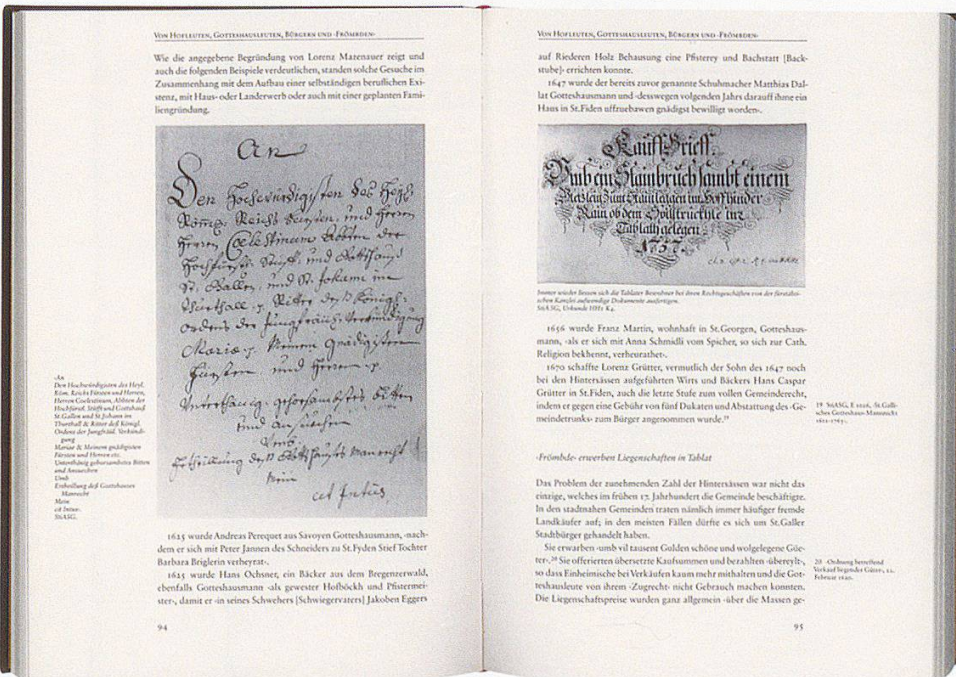 VON HOFLEUTEN, GOTTESHAUSLEUTEN, BÜRGERN UND ‹FRÖMBDEN›
Wie die angegebene Begründung von Lorenz Mazenauer zeigt und
auch die folgenden Beispiele verdeutlichen, standen solche Gesuche im
Zusammenhang mit dem Aufbau einer selbständigen beruflichen Exi-
stenz, mit Haus- oder Landerwerb oder auch mit einer geplanten Fami-
liengründung.
An
Den Hochwürdigisten des Heyl.
Röm. Reichs Fürsten und Herren,
Herren Coelestinum, Abbten der
Hochfürstl. Stüfft und Gottshauß
St. Gallen, und St. Johann im
Thurthall & Ritter deß Königl.
Ordens der Jungfräul. Verkündigung
Mariae & Meinem gnädigisten
Fürsten und Herren
Unterthänig gehorsambstes Bitten
und Ansuechen
Umb
Ertheillung deß Gottshauses Manrecht
Mein
cit Intus
‹An
Den Hochwürdigisten des Heyl.
Röm. Reichs Fürsten und Herren,
Herren Coelestinum, Abbten der
Hochfürstl. Stüfft und Gottshauß
St. Gallen und St. Johann im
Thurthall & Ritter deß Königl.
Ordens der Jungfräul. Verkündi-
gung
Mariae & Meinem gnädigisten
Fürsten und Herren etc.
Unterthänig gehorsambstes Bitten
und Ansuechen
Umb
Ertheillung deß Gottshauses
Manrecht
Mein
cit Intus›.
StASG.
1625 wurde Andreas Perequet aus Savoyen Gotteshausmann, ‹nach-
dem er sich mit Peter Jannen des Schneiders zu St. Fyden Stief Tochter
Barbara Briglerin verheyrat›.
1645 wurde Hans Ochsner, ein Bäcker aus dem Bregenzerwald,
ebenfalls Gotteshausmann ‹als gewester Hofböckh und Pfistermei-
ster›, damit er ‹in seines Schwehers [Schwiegervaters] Jakoben Eggers
94
VON HOFLEUTEN, GOTTESHAUSLEUTEN, BÜRGERN UND ‹FRÖMBDEN›
auf Riederen Holz Behausung eine Pfisterey und Bachstatt [Back-
stube]› errichten konnte.
1647 wurde der bereits zuvor genannte Schuhmacher Matthias Dal-
lat Gotteshausmann und ‹desswegen volgenden Jahrs darauff ihme ein
Haus in St. Fiden uffzuebawen gnädigst bewilligt worden›.
Kauff Brieff.
Umb ein Stainbruch sambt einem
im Hoff hinder
Rain ob dem
Tablath gelegen
1757.
Immer wieder liessen sich die Tablater Bewohner bei ihren Rechtsgeschäften von der fürstäbti-
schen Kanzlei aufwendige Dokumente ausfertigen.
StASG, Urkunde HH1 K4.
1656 wurde Franz Martin, wohnhaft in St. Georgen, Gotteshaus-
mann, ‹als er sich mit Anna Schmidli vom Spicher, so sich zur Cath.
Religion bekhennt, verheurathet›.
1670 schaffte Lorenz Grütter, vermutlich der Sohn des 1647 noch
bei den Hintersässen aufgeführten Wirts und Bäckers Hans Caspar
Grütter in St. Fiden, auch die letzte Stufe zum vollen Gemeinderecht,
indem er gegen eine Gebühr von fünf Dukaten und Abstattung des ‹Ge-
meindetrunks› zum Bürger angenommen wurde.19
19 StASG, E 1226, ‹St. Galli-
sches Gotteshaus-Mannrecht
1621–1763›.
‹Frömbde› erwerben Liegenschaften in Tablat
Das Problem der zunehmenden Zahl der Hintersässen war nicht das
einzige, welches im frühen 17. Jahrhundert die Gemeinde beschäftigte.
In den stadtnahen Gemeinden traten nämlich immer häufiger fremde
Landkäufer auf; in den meisten Fällen dürfte es sich um St. Galler
Stadtbürger gehandelt haben.
Sie erwarben ‹umb vil tausent Gulden schöne und wolgelegene Güe-
ter›.20 Sie offerierten übersetzte Kaufsummen und bezahlten ‹übereylt›,
so dass Einheimische bei Verkäufen kaum mehr mithalten und die Got-
teshausleute von ihrem ‹Zugrecht› nicht Gebrauch machen konnten.
Die Liegenschaftspreise wurden ganz allgemein ‹über die Massen ge-
20 ‹Ordnung betreffend
Verkauf liegender Güter›, 12.
Februar 1620.
95